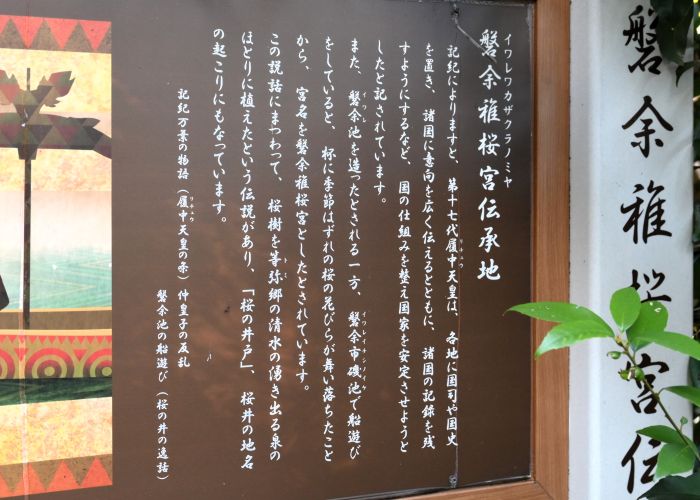 磐余稚桜宮伝
イワレワカザクラノミヤ
磐余稚桜宮伝承地
記紀によりますと、第十七代履中天皇は、各地に国司や国史
を置き、諸国に意向を広く伝えるとともに、諸国の記録を残
すようにするなど、国の仕組みを整え国家を安定させようと
したと記されています。
また、磐余池を造ったとされる一方、磐余市磯池で船遊び
をしていると、杯に季節はずれの桜の花びらが舞い落ちたこと
から、宮名を磐余稚桜宮としたとされています。
この説話にまつわって、桜樹を等弥郷の清水の湧き出る泉の
ほとりに植えたという伝説があり、「桜の井戸」、桜井の地名
の起こりにもなっています。
記紀万葉の物語（履中天皇の条）仲皇子の反乱
磐余池の船遊び（桜の井の逸話）